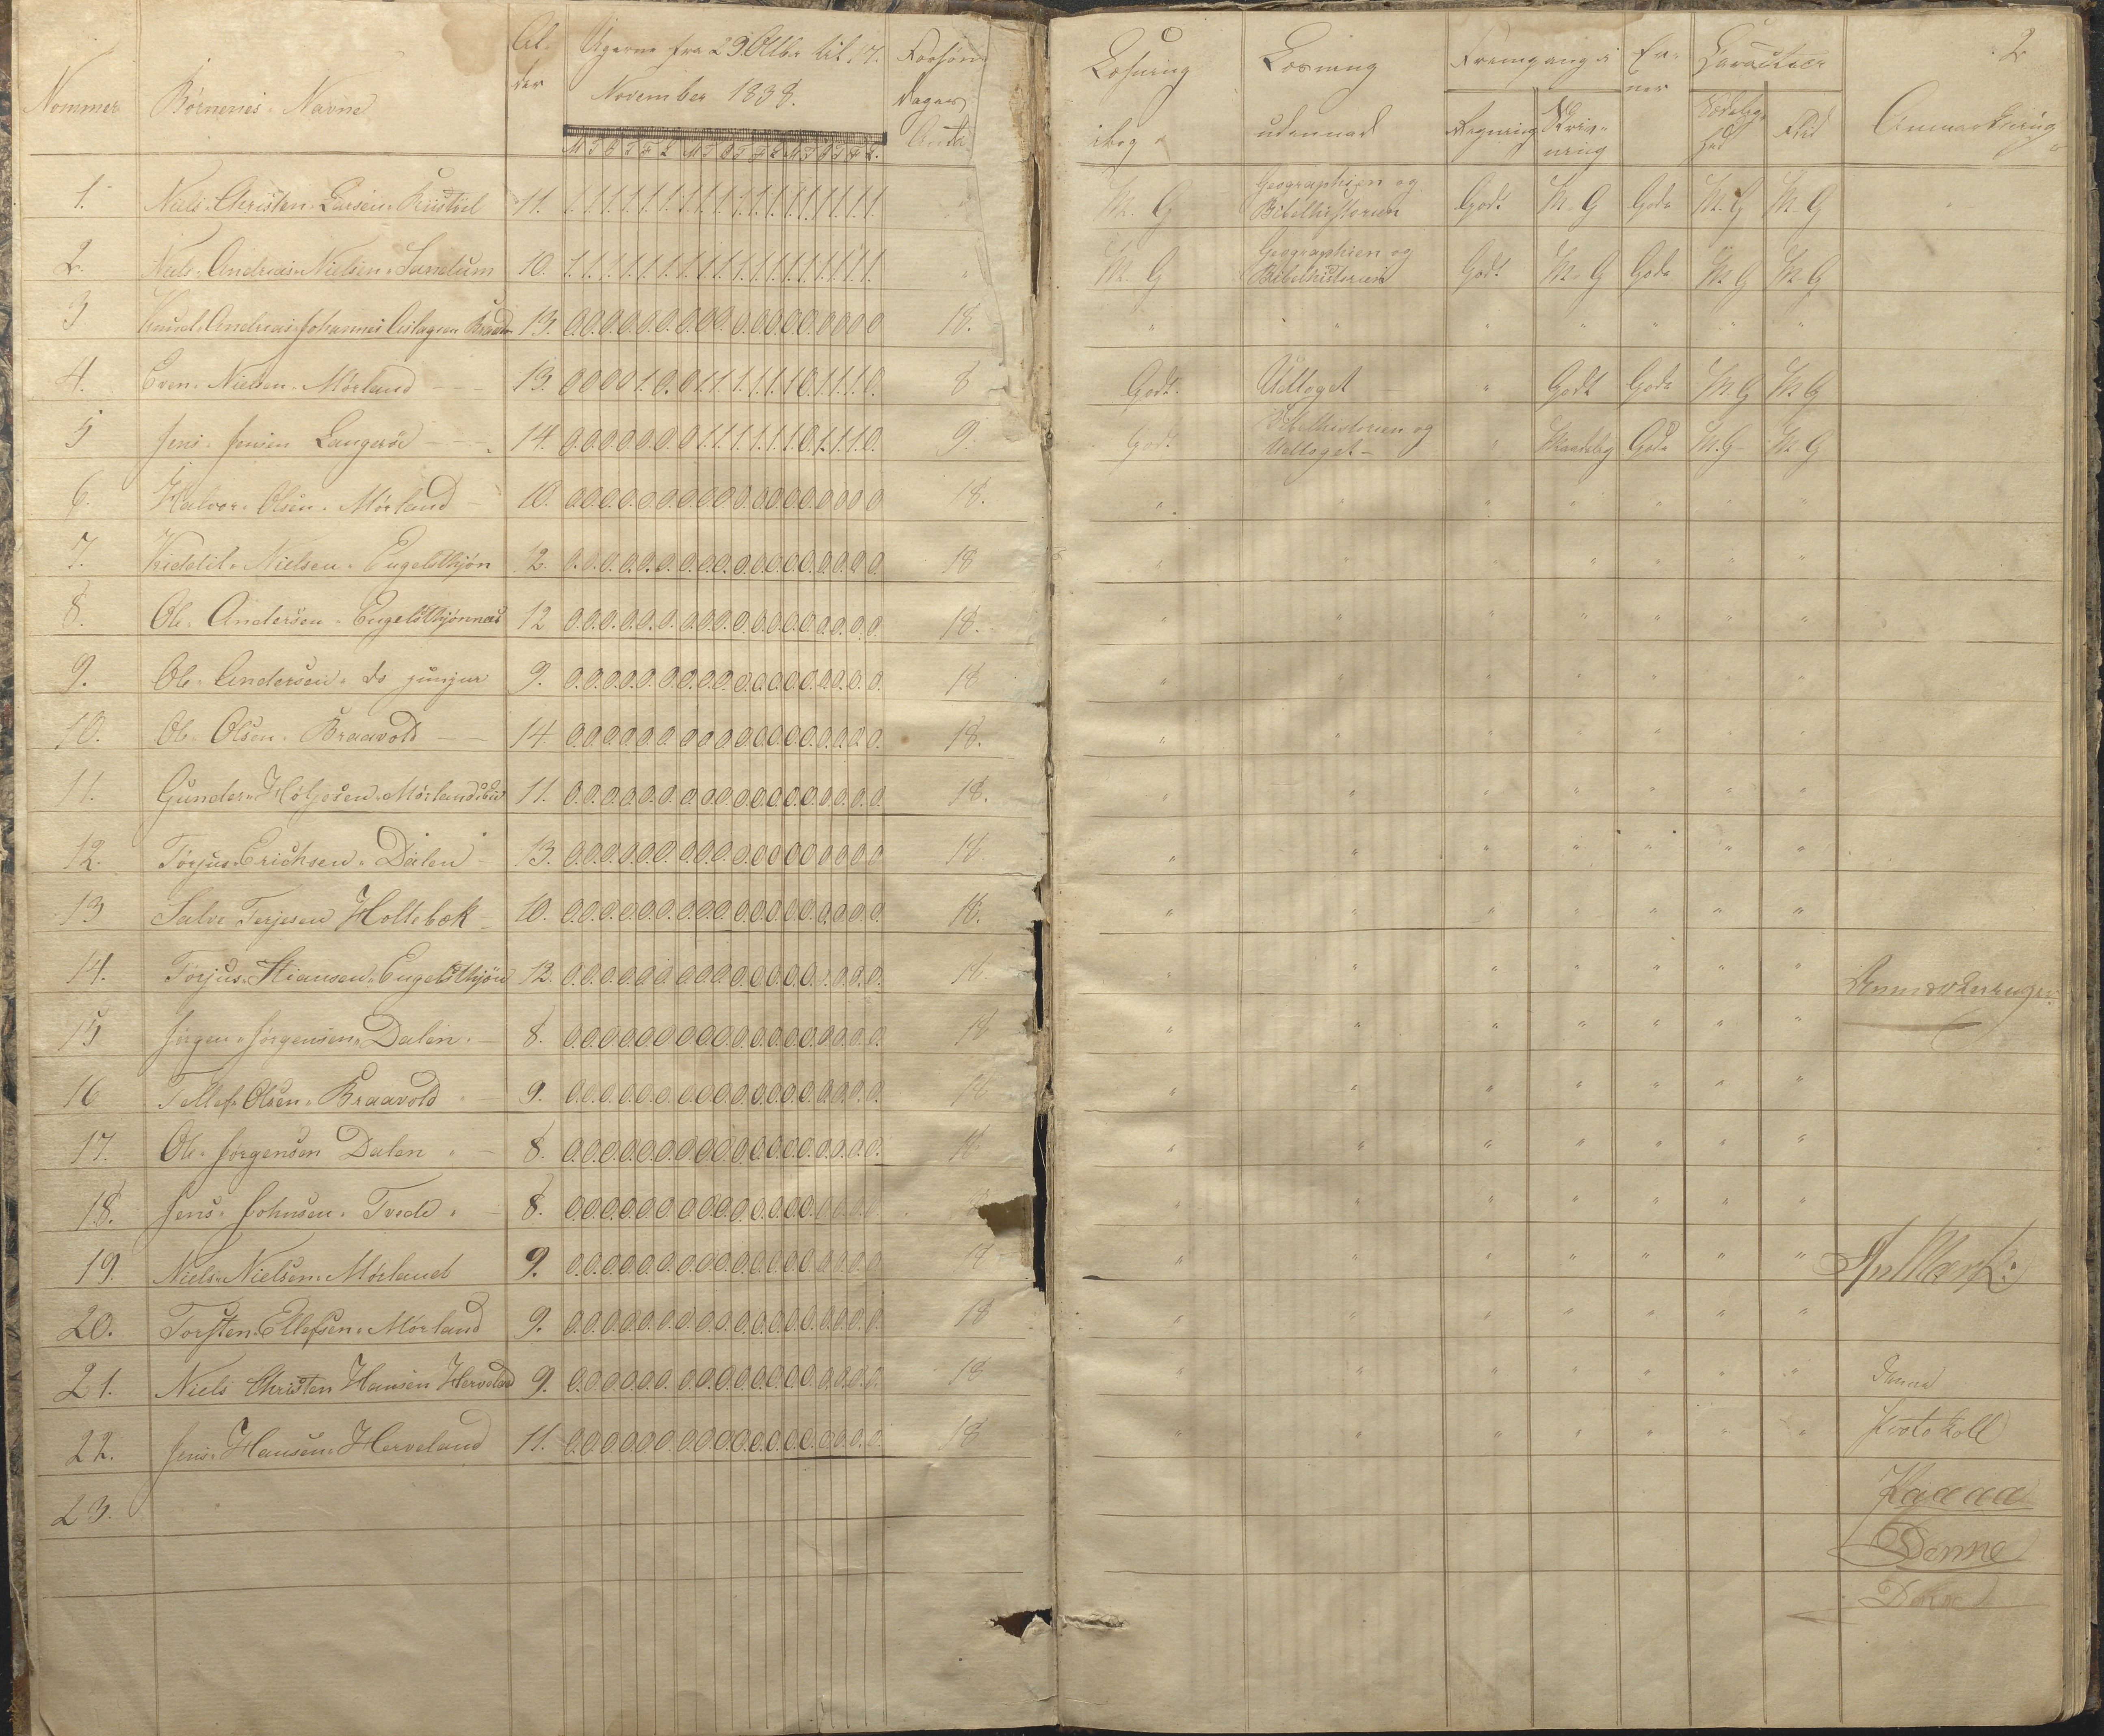 2
Nommer Børnenes Navne Al- der Ugerne fra 29 Octbr til 17. November 1838. Forsøm. Dages Antal
Læsning i bog Læsning udenad Fremgang i Regning Skriv- ning Ev- ner Caracteer Sædelig- hed Flid Anmærkning
M T O T F L M T O T F L M T O T F L.
1. Niels Christen Larsen 11. 1.1.1.1.1.1.1.1.1.1.1.1.1.1.1.1.1.1. " M. G Geographien og Bibelhistorien Godt M. G Gode M. G M. G
2. Niels Andreas Nielsen Sandum 10. 1.1.1.1.1.1.1.1.1.1.1.1.1.1.1.1.1.1. " M. G Geographien og Bibelhistorien Godt M. G Gode M. G M. G
3 Knud Andreas Johannes 13. 0.0.0.0.0.0.0.0.0.0.0.0.0.0.0.0.0.0 18. " " " " " " "
4. Even Nielsen Mørland 13. 0 0 0 0 1. 0. 0 1.1.1.1.1.1 0.1.1.1.0. 8 Godt. Udtoget " Godt Gode M. G M. G
5 Jens Jensen Langerød 14. 0.0.0.0.0.0.0 1.1.1.1.1.1 0.1.1.1.0. 9. Godt Bibelhistorien og Udtoget " Maadelig Gode M. G M. G
6. Halvor Olsen Mørland 10. 0.0.0.0.0.0.0.0.0.0.0.0.0.0.0.0.0.0 18. " " " " " " "
7. Kieddil Nielsen Engelsthjøn 12. 0.0.0.0.0.0.0.0.0.0.0.0.0.0.0.0.0.0. 18 " " " " " " "
8. Ole Andersen Engelsthjønnes 12 0.0.0.0.0.0.0.0.0.0.0.0.0.0.0.0.0.0. 18. " " " " " " "
9. Ole Andersen do junjur 9. 0.0.0.0.0.0.0.0.0.0.0.0.0.0.0.0.0.0. 18 " " " " " " "
10. Ole Olsen Braavold 14 0.0.0.0.0.0.0.0.0.0.0.0.0.0.0.0.0.0. 18. " " " " " " "
11. Gunder Høljesen 11. 0.0.0.0.0.0.0.0.0.0.0.0.0.0.0.0.0.0. 18. " " " " " " "
12. Tørjus Erichsen Dalen 13. 0.0.0.0.0.0.0.0.0.0.0.0.0.0.0.0.0.0 18 " " " " " " "
13 Salve Terjesen Holtebæk 10. 0.0.0.0.0.0.0.0.0.0.0.0.0.0.0.0.0.0. 18. " " " " " " "
14. Tørjus Stiansen Engelsthjøn 13. 0.0.0.0.0.0.0.0.0.0.0.0.0.0.0.0.0.0. 18. " " " " " " "
15 Jørgen Jørgensen Dalen 8. 0.0.0.0.0.0.0.0.0.0.0.0.0.0.0.0.0.0. 18 " " " " " " "
16 Tellef Olsen Braavold 9. 0.0.0.0.0.0.0.0.0.0.0.0.0.0.0.0.0.0. 18 " " " " " " "
17. Ole Jørgensen Dalen 8. 0.0.0.0.0.0.0.0.0.0.0.0.0.0.0.0.0.0. 18 " " " " " " "
18. Jens Johnsen Tvede 8. 0.0.0.0.0.0.0.0.0.0.0.0.0.0.0.0.0.0 " " " " " " "
19. Niels Nielsen Mørland 9. 0.0.0.0.0.0.0.0.0.0.0.0.0.0.0.0.0.0 18 " " " " " " "
20. Torsten Ellefsen Mørland 9. 0.0.0.0.0.0.0.0.0.0.0.0.0.0.0.0.0.0. 18 " " " " " " "
21. Niels Christen Hansen Herveland 9. 0.0.0.0.0.0.0.0.0.0.0.0.0.0.0.0.0.0. 18 " " " " " " "
22. Jens Hansen Herveland 11. 0.0.0.0.0.0.0.0.0.0.0.0.0.0.0.0.0.0. 18 " " " " " " " Protokoll
23.
Denne
Denne